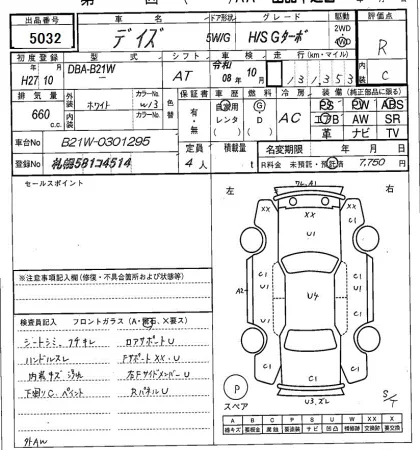 出品番号 車名 ドア形状 グレード 駆動 評価点
5032 デイズ 5W/G H/S Gターボ 2WD WD R
初度登録 型式 シフト 車検 走行(km・マイル) 内装
H27年10月 DBA-B21W AT 令和08年10月 131,353 C
排気量 外装 ホワイト カラーNo. W13 色替 保証書 車歴 燃料 冷房 装備(純正部品に限る)
660 c.c. 内装 カラーNo. 有・無 自家用 レンタ G D AC PS PW ABS
エアB AW SR
革 ナビ TV
車台No B21W-0301295 定員 積載量 名変期限 年 月 日
登録No 札幌581コ4514 4人 kg R料金 未預託・預託済 7,750円
セールスポイント
左 右
※注意事項記入欄(修復・不具合箇所および状態等)
検査員記入 フロントガラス(A・飛石・X要ス)
シートシミ、コゲキレ ロアサポートU
ハンドルスレ FサポートXX、U
内装キズ汚れ 左FサイドメンバーU
下廻りC、ペイント RパネルU
外AW
XX XX XX
U1
C1 U1 C1
A2 U4
C1 C1
C1 C1
U3、ズレ
P
スペア
S/T
A B C P S U W XX X
線キズ 腐蝕 要塗装 サビ 凹凸 補修跡 交換跡 要交換